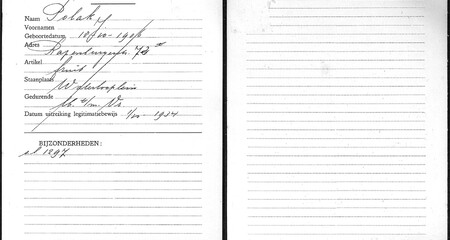 Naam Polak
Voornamen
Geboortedatum
Adres Rapenburgerstr. 73
Artikel fruit
Staanplaats Waterlooplein
Gedurende
Datum uitreiking legitimatiebewijs 1934
BIJZONDERHEDEN:
1297